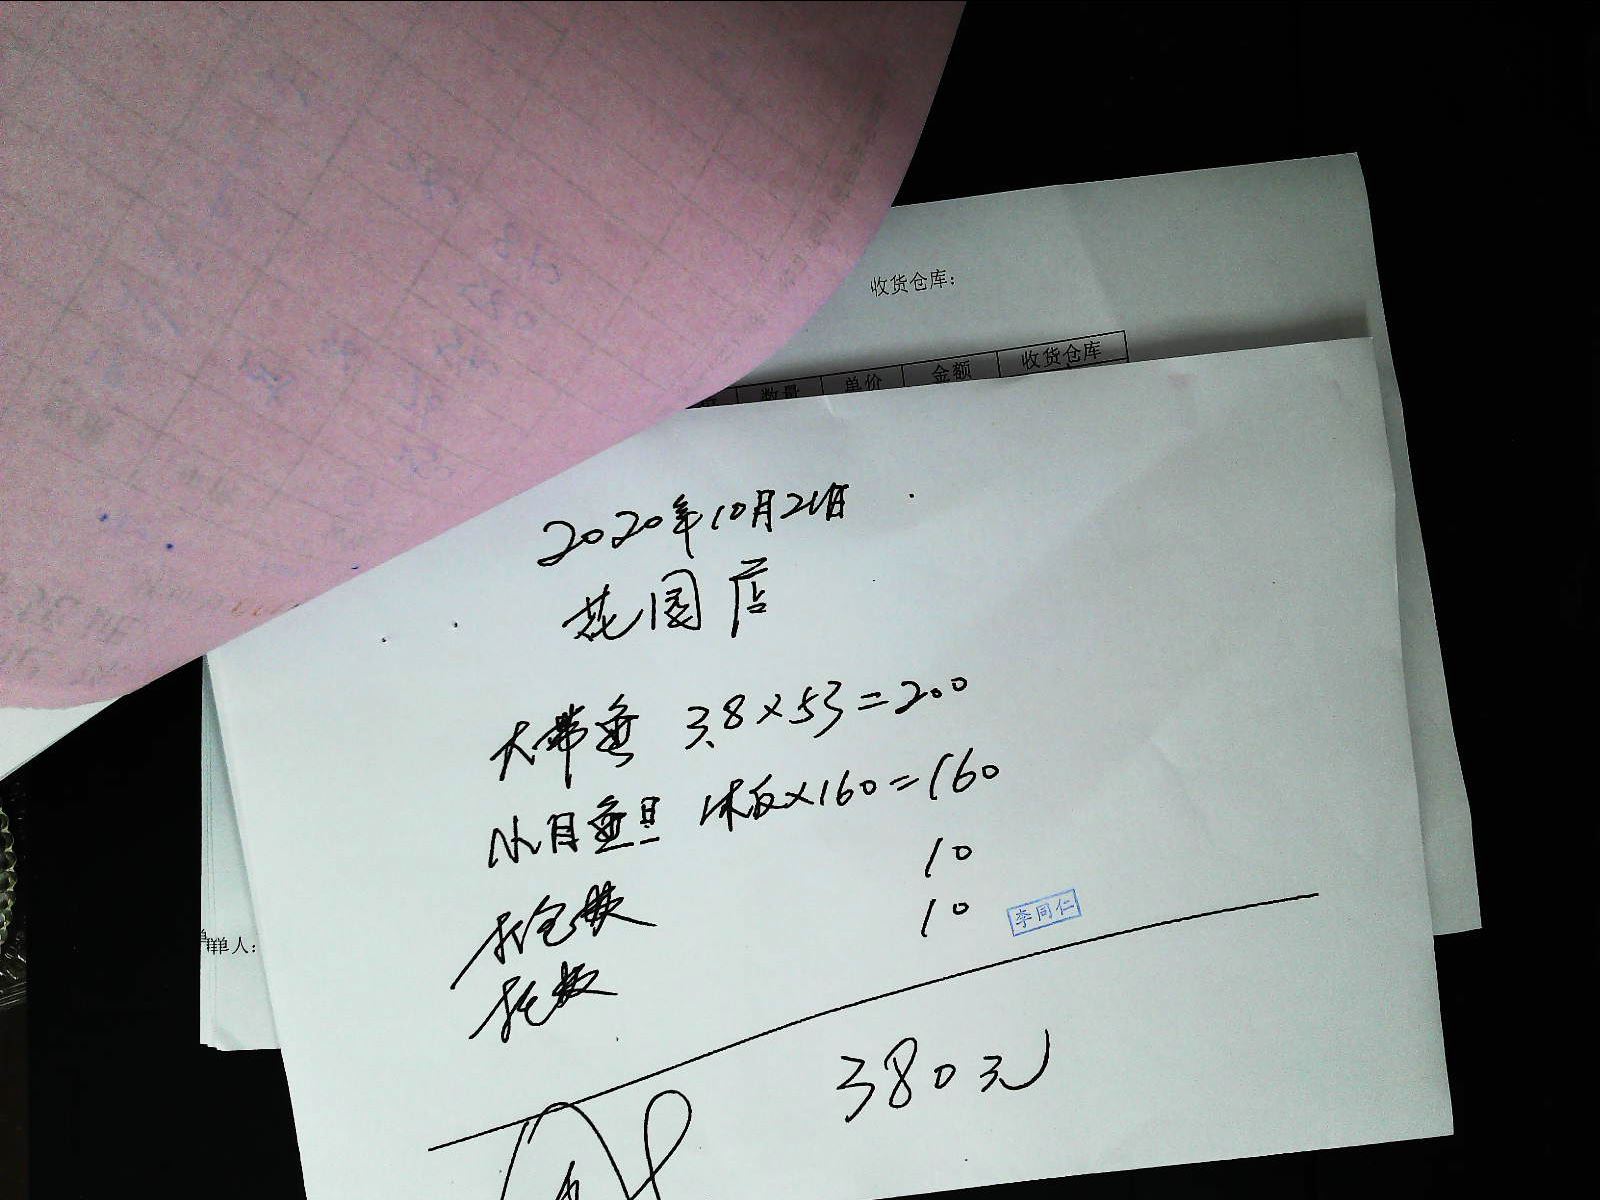 收货仓库:
数量 单价 金额 收货仓库
2020年10月21日
花园店
大带鱼 3.8×53=200
小目鱼旦 1木板×160=160
打包费 10
托板 10
李同仁
单人:
380元